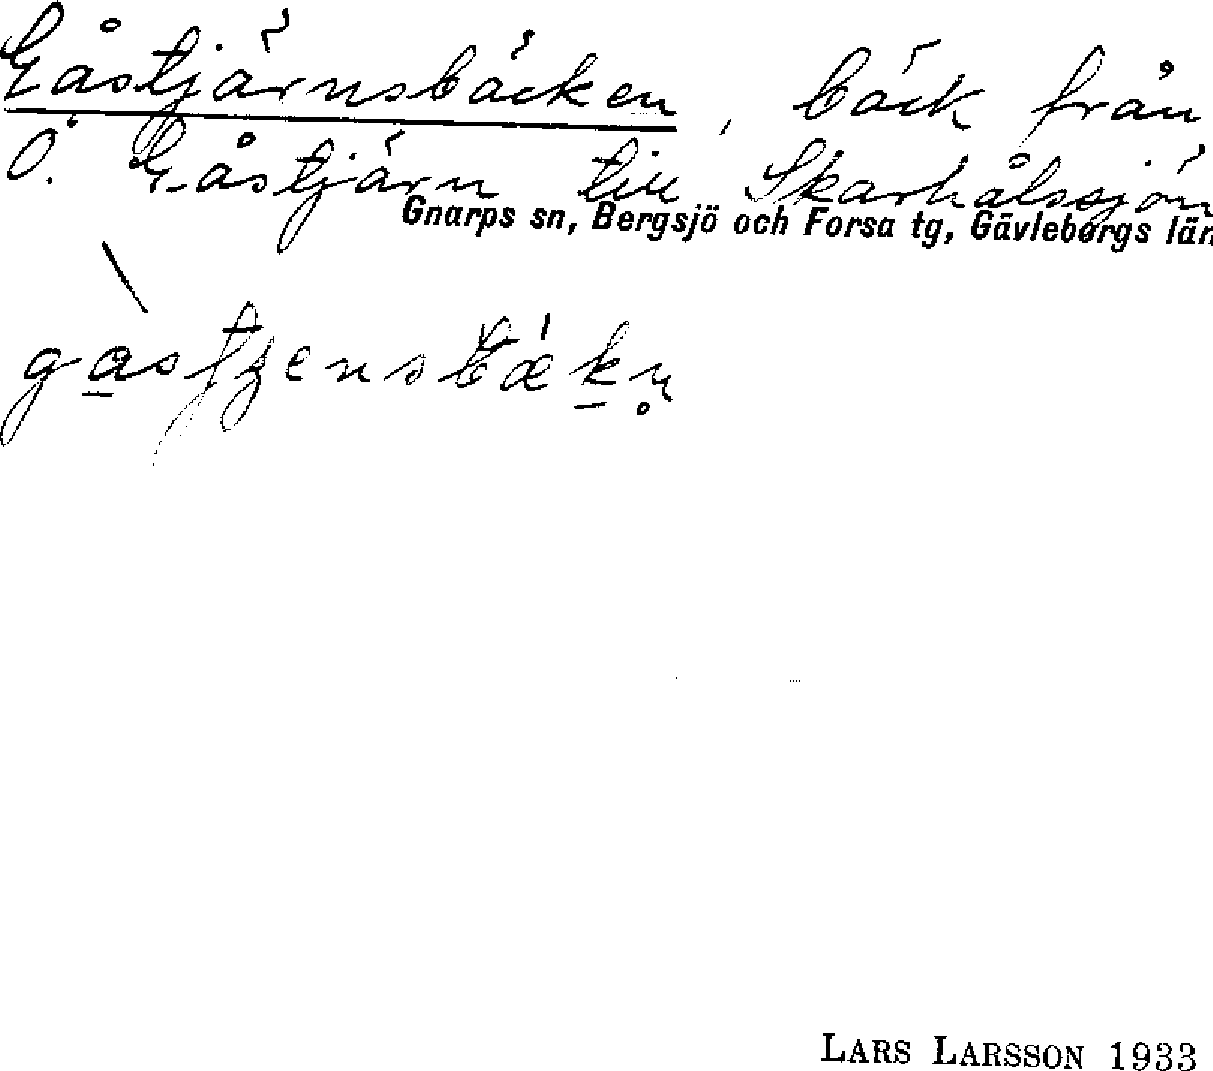 Gåstjärnsbäcken, bäck från
Ö. Gåstjärn till Skarhålssjön
Gnarps sn, Bergsjö och Forsa tg, Gävleborgs län
LARS LARSSON 1933